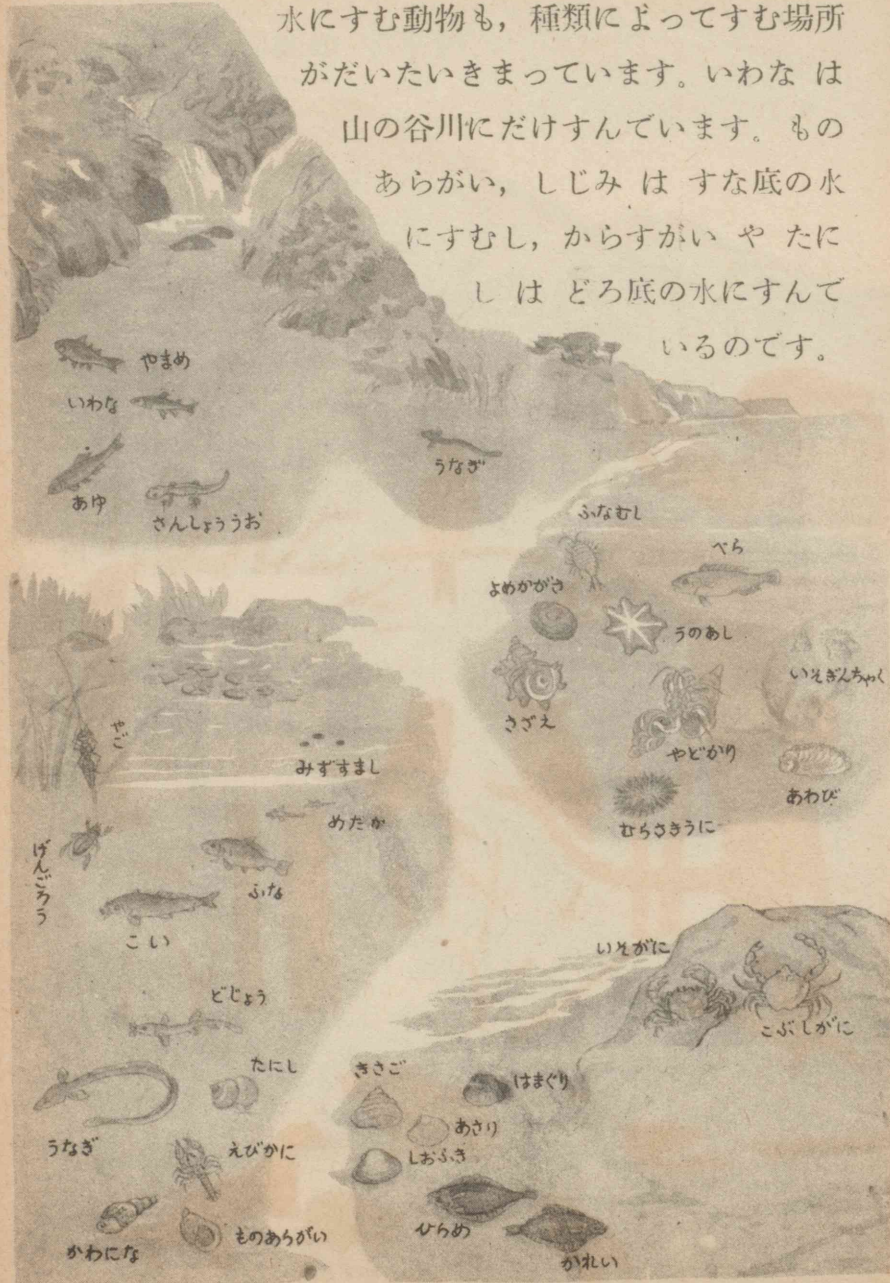 水にすむ動物も，種類によってすむ場所
がだいたいきまっています。いわな は
山の谷川にだけすんでいます。もの
あらがい，しじみ は すな底の水
にすむし，からすがい や たに
し は どろ底の水にすんで
いるのです。
やまめ
いわな
あゆ
さんしょううお
うなぎ
ふなむし
べら
よめがかさ
うのあし
いそぎんちゃく
さざえ
やどかり
あわび
むらさきうに
やご
みずすまし
めたか
げんごろう
ふな
こい
どじょう
たにし
うなぎ
えびかに
かわにな
ものあらがい
いそがに
こぶしがに
きさご
はまぐり
あさり
しおふき
ひらめ
かれい